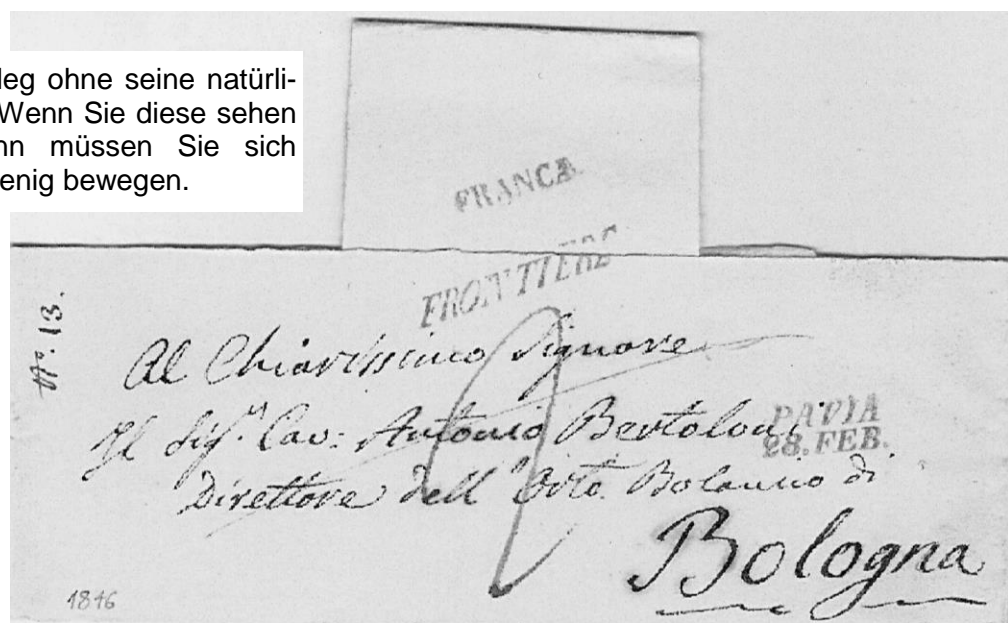 leg ohne seine natürli-
Wenn Sie diese sehen
nn müssen Sie sich
enig bewegen.
FRANCA
FRONTIERE
No. 13.
Al Chiarissimo Signore
Il Sigr. Cav: Antonio Bertoloni
PAVIA
28. FEB.
Direttore dell'Orto Botanico di
Bologna
1846